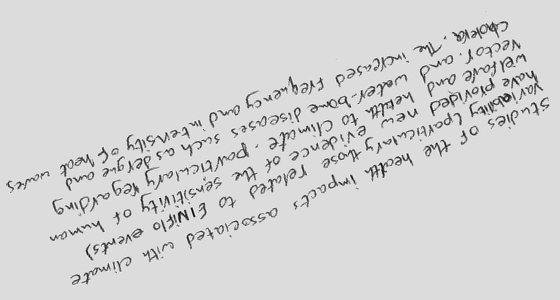 studies of the health impacts associated with climate
variability (particularly those related to ElNiño events)
have provided new evidence of the sensitivity of human
welfare and health to climate. particularly regarding
vector. and water-borne diseases such as dengue and
cholera. The increased frequency and intensity of heat waves